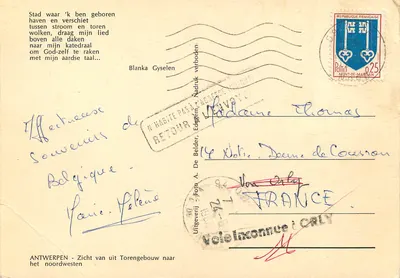 Stad waar 'k ben geboren
haven en verschiet
tussen stroom en toren
wolken, draag mijn lied
boven alle daken
naar mijn katedraal
om God-zelf te raken
met mijn aardse taal...
Blanka Gyselen
REPUBLIQUE FRANÇAISE
Postes 0,25
MONT-DE-MARSAN
RETOUR A L'ENVOYEUR
Affectueux
Souvenirs de
Belgique.
Marie-Hélène
Madame Thomas
14 Notre-Dame de
Von Orly
FRANCE
Voie Inconnue à ORLY
Uitgeverij - Foto A. De Belder, Edegem - Nadruk verboden
ANTWERPEN - Zicht van uit Torengebouw naar
het noordwesten